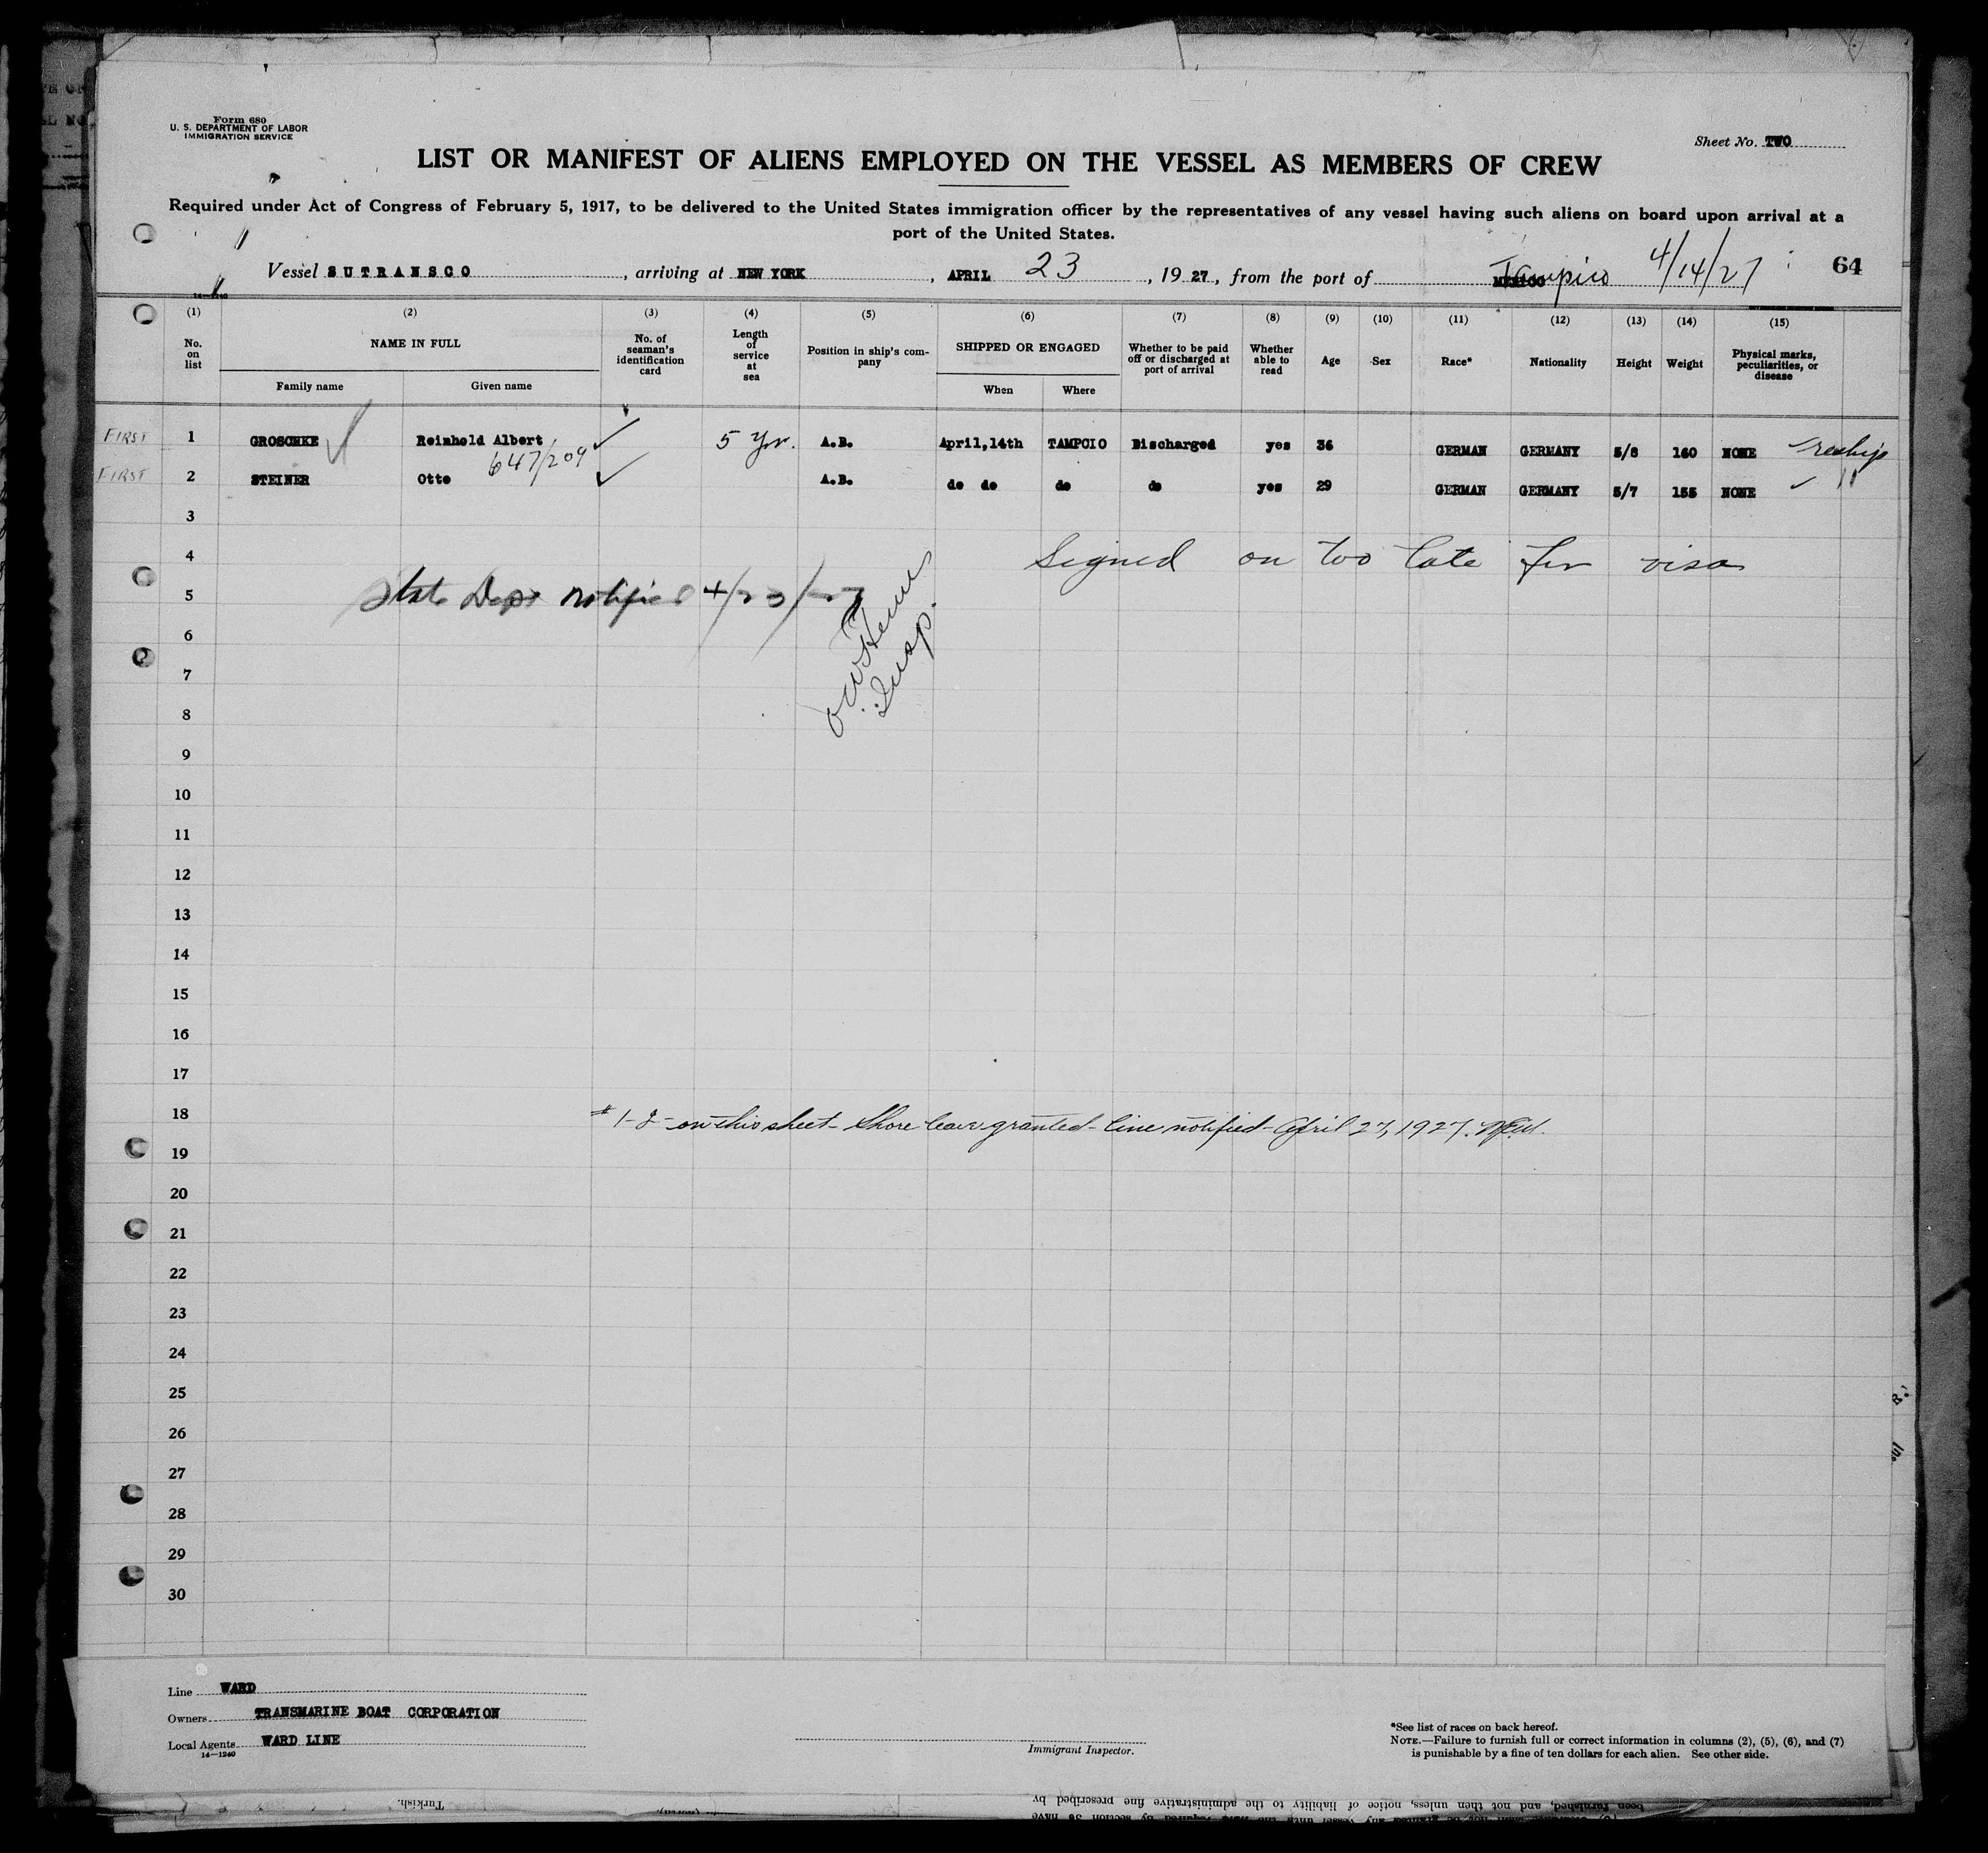 Form 680
U. S. DEPARTMENT OF LABOR
IMMIGRATION SERVICE
Sheet No. TWO
LIST OR MANIFEST OF ALIENS EMPLOYED ON THE VESSEL AS MEMBERS OF CREW
Required under Act of Congress of February 5, 1917, to be delivered to the United States immigration officer by the representatives of any vessel having such aliens on board upon arrival at a
port of the United States.
Vessel SUTRANSCO, arriving at NEW YORK, APRIL 23, 1927, from the port of MEXICO Tampico 4/14/27 64
14—1240
(1) (2) (3) (4) (5) (6) (7) (8) (9) (10) (11) (12) (13) (14) (15)
No. on list NAME IN FULL No. of seaman's identification card Length of service at sea Position in ship's company SHIPPED OR ENGAGED Whether to be paid off or discharged at port of arrival Whether able to read Age Sex Race* Nationality Height Weight Physical marks, peculiarities, or disease
Family name Given name When Where
FIRST 1 GROSCHKE Reinhold Albert ✓ 5 yr. A.B. April,14th TAMPCIO Discharged yes 36 GERMAN GERMANY 5/8 160 NONE ✓ reship
647/209
FIRST 2 STEINER Otto ✓ A.B. do do do do yes 29 GERMAN GERMANY 5/7 155 NONE ✓ "
3
4 Signed on too late for visa
5 State Dept notified 4/23/27
Insp.
6
7
8
9
10
11
12
13
14
15
16
17
18 # 1-2- on this sheet- Shore leave granted- line notified- April 27, 1927.
19
20
21
22
23
24
25
26
27
28
29
30
Line WARD
Owners TRANSMARINE BOAT CORPORATION
Local Agents WARD LINE
14—1240
Immigrant Inspector.
*See list of races on back hereof.
NOTE.—Failure to furnish full or correct information in columns (2), (5), (6), and (7)
is punishable by a fine of ten dollars for each alien. See other side.
Turkish.
been furnished, and not then unless, notice of liability to the administrative fine prescribed by